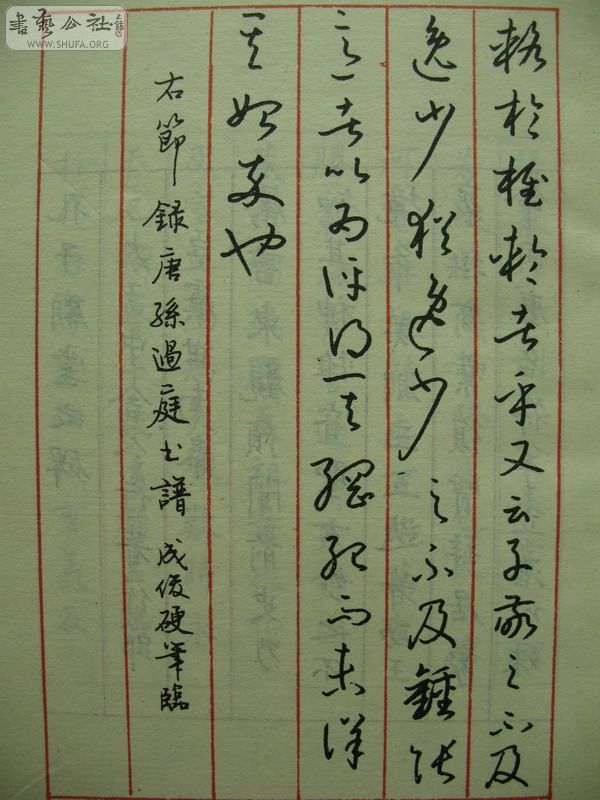 輅於椎輪者乎又云子敬之不及
逸少猶逸少之不及鍾張
意者以為評得其綱紀而未詳
其始卒也
右節録唐孫過庭書譜 成俊硬筆臨
書藝公社
WWW.SHUFA.ORG